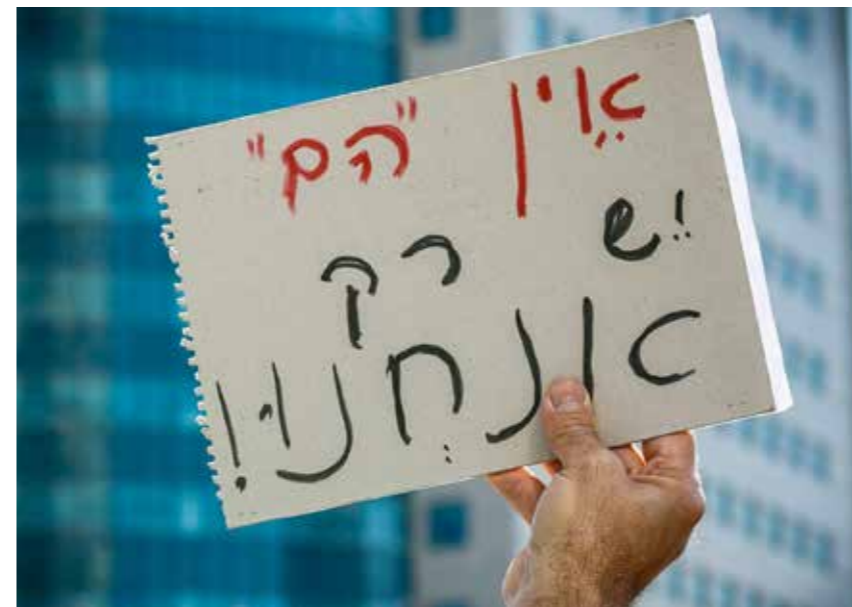 אֵין "הֵם"
יֵש רק
אנחְנוּ!